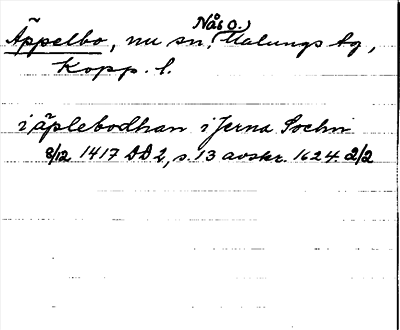 Nås (o.)
Äppelbo, nu sn, Malungs tg,
Kopp. l.
i äplebodhan i Jerna Sochn
8/12 1417 DD 2, s. 13 avskr. 1624 2/2